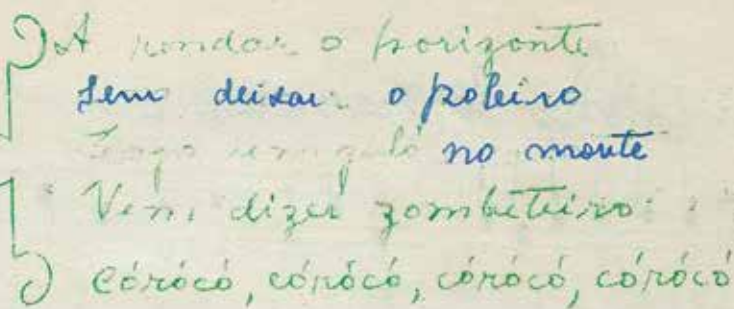 A rondar o horizonte
sem deixar o poleiro
no monte
Vem dizer zombeteiro:
Córócó, córócó, córócó, córócó